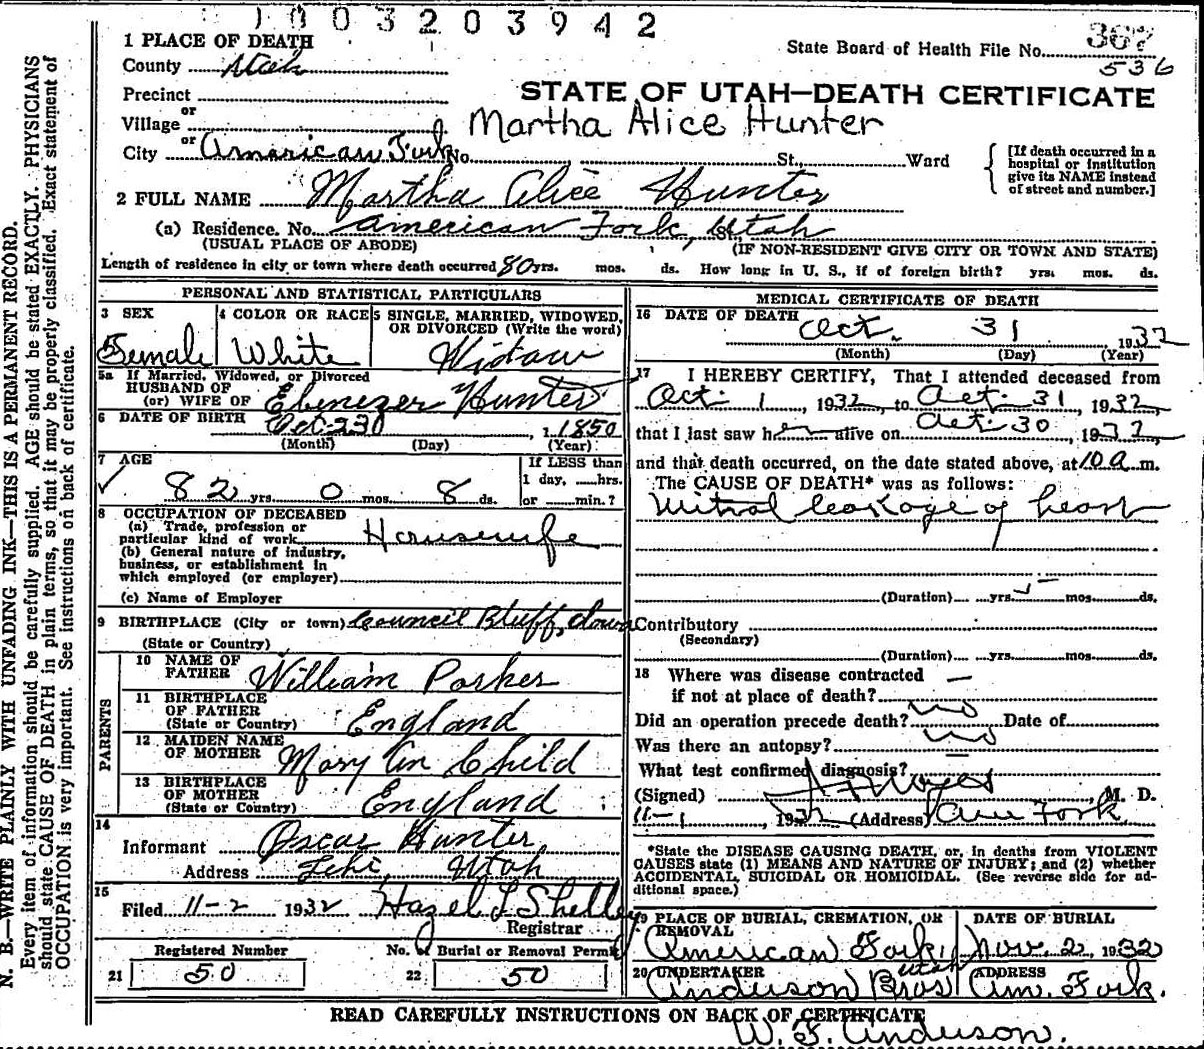 1003203942
1 PLACE OF DEATH
State Board of Health File No. 367
536
County Utah
Precinct
STATE OF UTAH—DEATH CERTIFICATE
or
Village
Martha Alice Hunter
or
City American Fork No. St., Ward
[If death occurred in a hospital or institution give its NAME instead of street and number.]
2 FULL NAME Martha Alice Hunter
(a) Residence. No. American Fork, Utah St.,
(USUAL PLACE OF ABODE) (IF NON-RESIDENT GIVE CITY OR TOWN AND STATE)
Length of residence in city or town where death occurred 80 yrs. mos. ds. How long in U. S., if of foreign birth? yrs. mos. ds.
PERSONAL AND STATISTICAL PARTICULARS
3 SEX 4 COLOR OR RACE 5 SINGLE, MARRIED, WIDOWED, OR DIVORCED (Write the word)
Female White Widow
5a If Married, Widowed, or Divorced
HUSBAND OF
(or) WIFE OF Ebenezer Hunter
6 DATE OF BIRTH Oct 23 1850
(Month) (Day) (Year)
7 AGE If LESS than
1 day, hrs.
82 yrs. 0 mos. 8 ds. or min.?
8 OCCUPATION OF DECEASED
(a) Trade, profession or
particular kind of work Housewife
(b) General nature of industry,
business, or establishment in
which employed (or employer)
(c) Name of Employer
9 BIRTHPLACE (City or town) Council Bluff, Iowa
(State or Country)
PARENTS
10 NAME OF
FATHER William Parker
11 BIRTHPLACE
OF FATHER England
(State or Country)
12 MAIDEN NAME
OF MOTHER Mary An Child
13 BIRTHPLACE
OF MOTHER England
(State or Country)
14
Informant Oscar Hunter
Address Lehi, Utah
15
Filed 11-2 1932 Hazel L Shelley
Registrar
Registered Number No. Burial or Removal Permit
21 50 22 50
MEDICAL CERTIFICATE OF DEATH
16 DATE OF DEATH Oct. 31 1932
(Month) (Day) (Year)
17 I HEREBY CERTIFY, That I attended deceased from
Oct. 1, 1932, to Oct. 31, 1932,
that I last saw her alive on Oct. 30, 1932
and that death occurred, on the date stated above, at 10 a m.
The CAUSE OF DEATH* was as follows:
Mitral leakage of heart
(Duration) yrs. mos. ds.
Contributory
(Secondary)
(Duration) yrs. mos. ds.
18 Where was disease contracted
if not at place of death? —
Did an operation precede death? no Date of
Was there an autopsy? no
What test confirmed diagnosis?
(Signed) M. D.
11-1, 1932 (Address) Am Fork
*State the DISEASE CAUSING DEATH, or, in deaths from VIOLENT
CAUSES state (1) MEANS AND NATURE OF INJURY; and (2) whether
ACCIDENTAL, SUICIDAL OR HOMICIDAL. (See reverse side for ad-
ditional space.)
19 PLACE OF BURIAL, CREMATION, OR REMOVAL DATE OF BURIAL
American Fork, Utah Nov. 2, 1932
20 UNDERTAKER ADDRESS
Anderson Bros Am. Fork.
READ CAREFULLY INSTRUCTIONS ON BACK OF CERTIFICATE
W. F. Anderson.
N. B.—WRITE PLAINLY WITH UNFADING INK—THIS IS A PERMANENT RECORD.
Every item of information should be carefully supplied. AGE should be stated EXACTLY. PHYSICIANS
should state CAUSE OF DEATH in plain terms, so that it may be properly classified. Exact statement of
OCCUPATION is very important. See instructions on back of certificate.